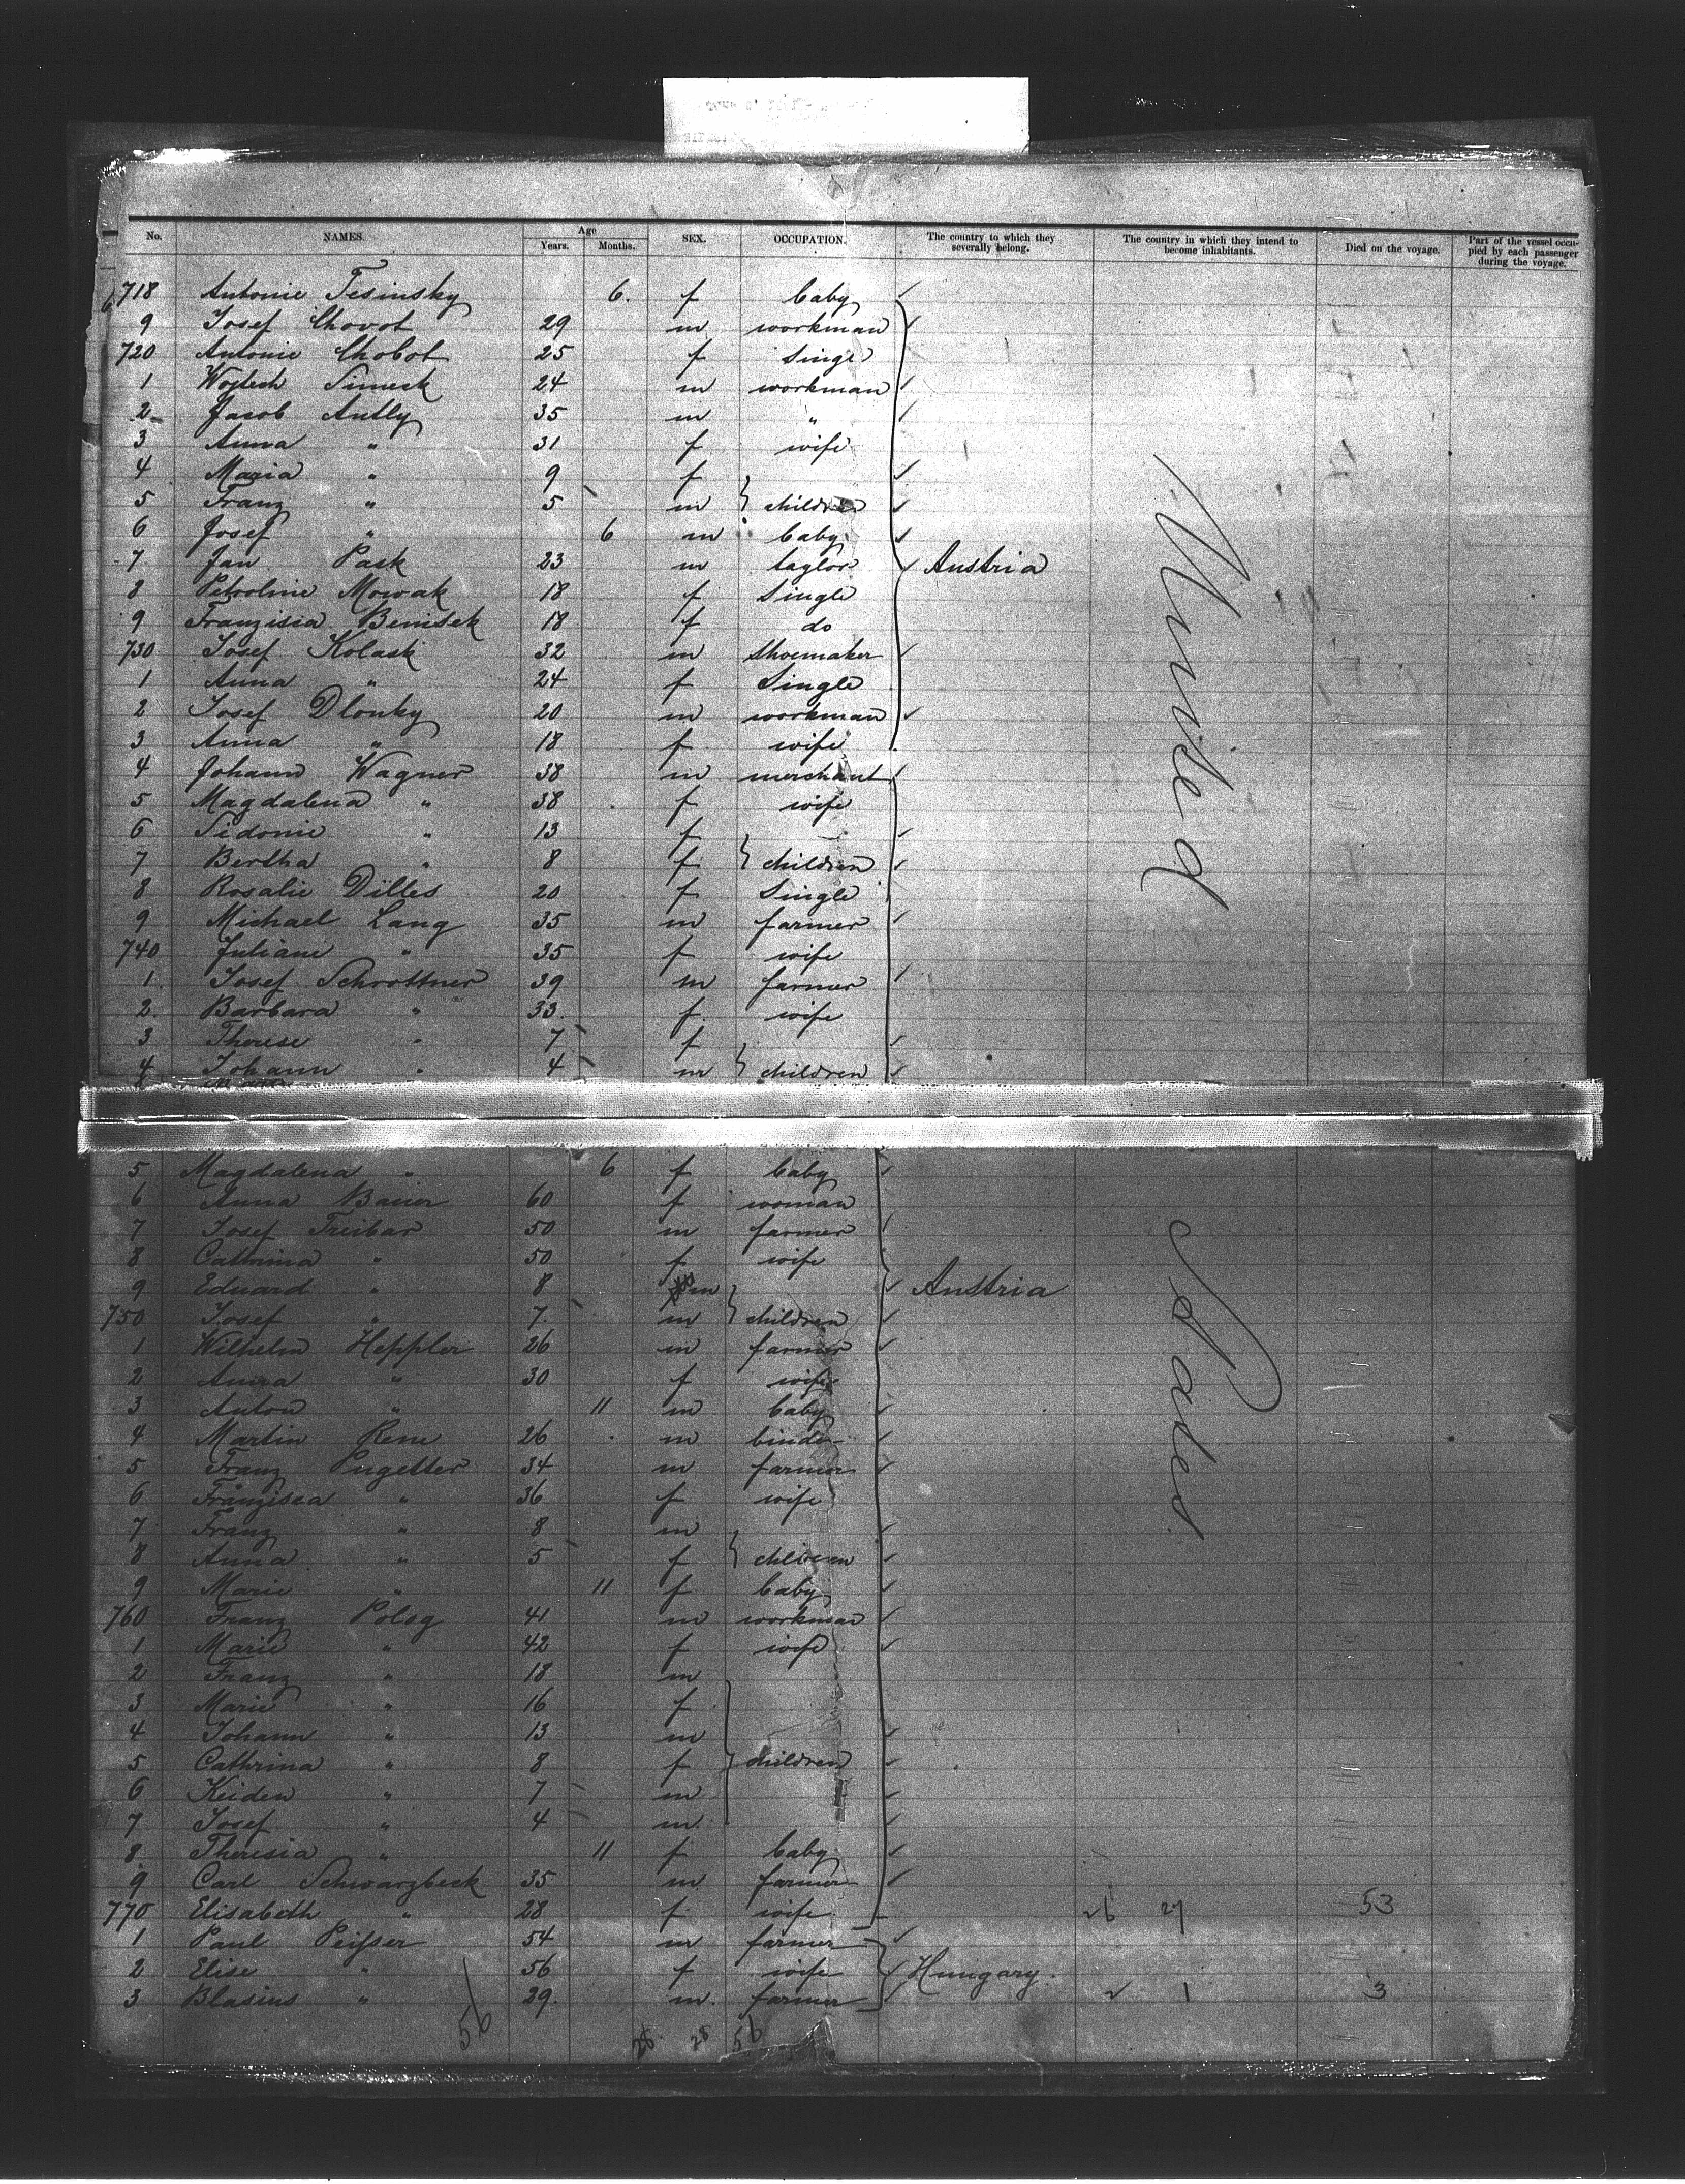 No. NAMES. Age Years. Months. SEX. OCCUPATION. The country to which they severally belong. The country in which they intend to become inhabitants. Died on the voyage. Part of the vessel occupied by each passenger during the voyage.
718 Antonie Tesinsky 6. f baby
9 Josef Chovot 29 m workman
720 Antonie Chobot 25 f Single
1 Wojtech Simeck 24 m workman
2 Jacob Antly 35 m "
3 Anna " 31 f wife
4 Maria " 9 f
5 Franz " 5 m children
6 Josef " 6 m baby
7 Jan Pask 23 m taylor Austria
8 Petroline Mowak 18 f Single
9 Franzisca Benisek 18 f do
730 Josef Kolask 32 m Shoemaker
1 Anna " 24 f Single
2 Josef Dlouky 20 m workman
3 Anna " 18 f wife
4 Johann Wagner 38 m merchant
5 Magdalena " 38 f wife
6 Sidonie " 13 f
7 Bertha " 8 f children
8 Rosalie Dilles 20 f Single
9 Michael Lang 35 m farmer
740 Juliane " 35 f wife
1. Josef Schrottner 39 m farmer
2. Barbara " 33. f wife
3 Therese " 7 f
4 Johann " 4 m children
United
5 Magdalena " 6 f baby
6 Anna Bauer 60 f woman
7 Josef Treibar 50 m farmer
8 Cathrina " 50 f wife
9 Eduard " 8 m Austria
750 Josef " 7. m children
1 Wilhelm Heppler 26 m farmer
2 Anna " 30 f wife
3 Anton " 11 m baby
4 Martin Renn 26 m binder
5 Franz Pugetter 34 m farmer
6 Franzisca " 36 f wife
7 Franz " 8 m
8 Anna " 5 f children
9 Marie " 11 f baby
760 Franz Poleg 41 m workman
1 Marie " 42 f wife
2 Franz " 18 m
3 Marie " 16 f
4 Johann " 13 m
5 Cathrina " 8 f children
6 Keiden " 7 m
7 Josef " 4 m
8 Theresia " 11 f baby
9 Carl Schwarzbeck 35 m farmer
770 Elisabeth " 28 f wife 26 27 53
1 Paul Peisser 54 m farmer
2 Elise " 56 f wife Hungary.
3 Blasius " 29. m. farmer 2 1 3
States
56 28 28 56